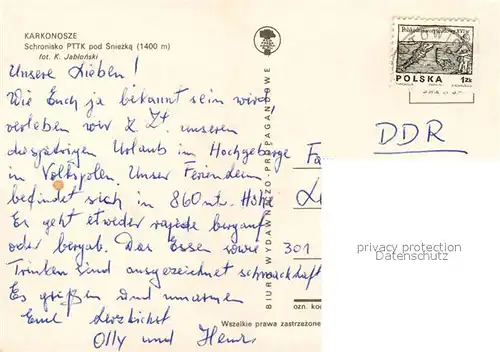 KARKONOSZE
Schronisko PTTK pod Śnieżką (1400 m)
fot. K. Jabłoński
Unsere Lieben!
Wie Euch ja bekannt sein wird
verleben wir z. Zt. unseren
diesjährigen Urlaub im Hochgebirge
in Volkspolen. Unser Ferienheim
befindet sich in 860 mtr. Höhe
Es geht etweder rapide bergauf
oder bergab. Das Essen sowie
Trinken sind ausgezeichnet schmackhaft
Es grüßen und umarmen
Euch herzlichst
Olly und
BIURO WYDAWNICZO-PROPAGANDOWE
POLSKA 1 ZŁ
DDR
301
ozn. ko
Wszelkie prawa zastrzeżone
privacy protection
Datenschutz